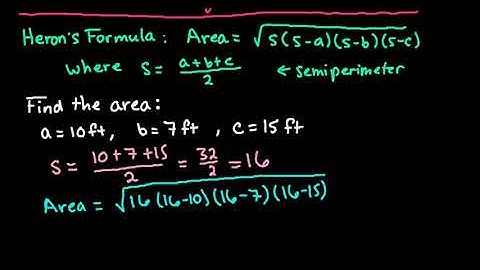 Heron's Formula: Area = √s(s-a)(s-b)(s-c)
where s = a+b+c/2 ← semiperimeter
Find the area:
a=10ft, b=7ft, c=15ft
s = 10+7+15/2 = 32/2 = 16
Area = √16(16-10)(16-7)(16-15)